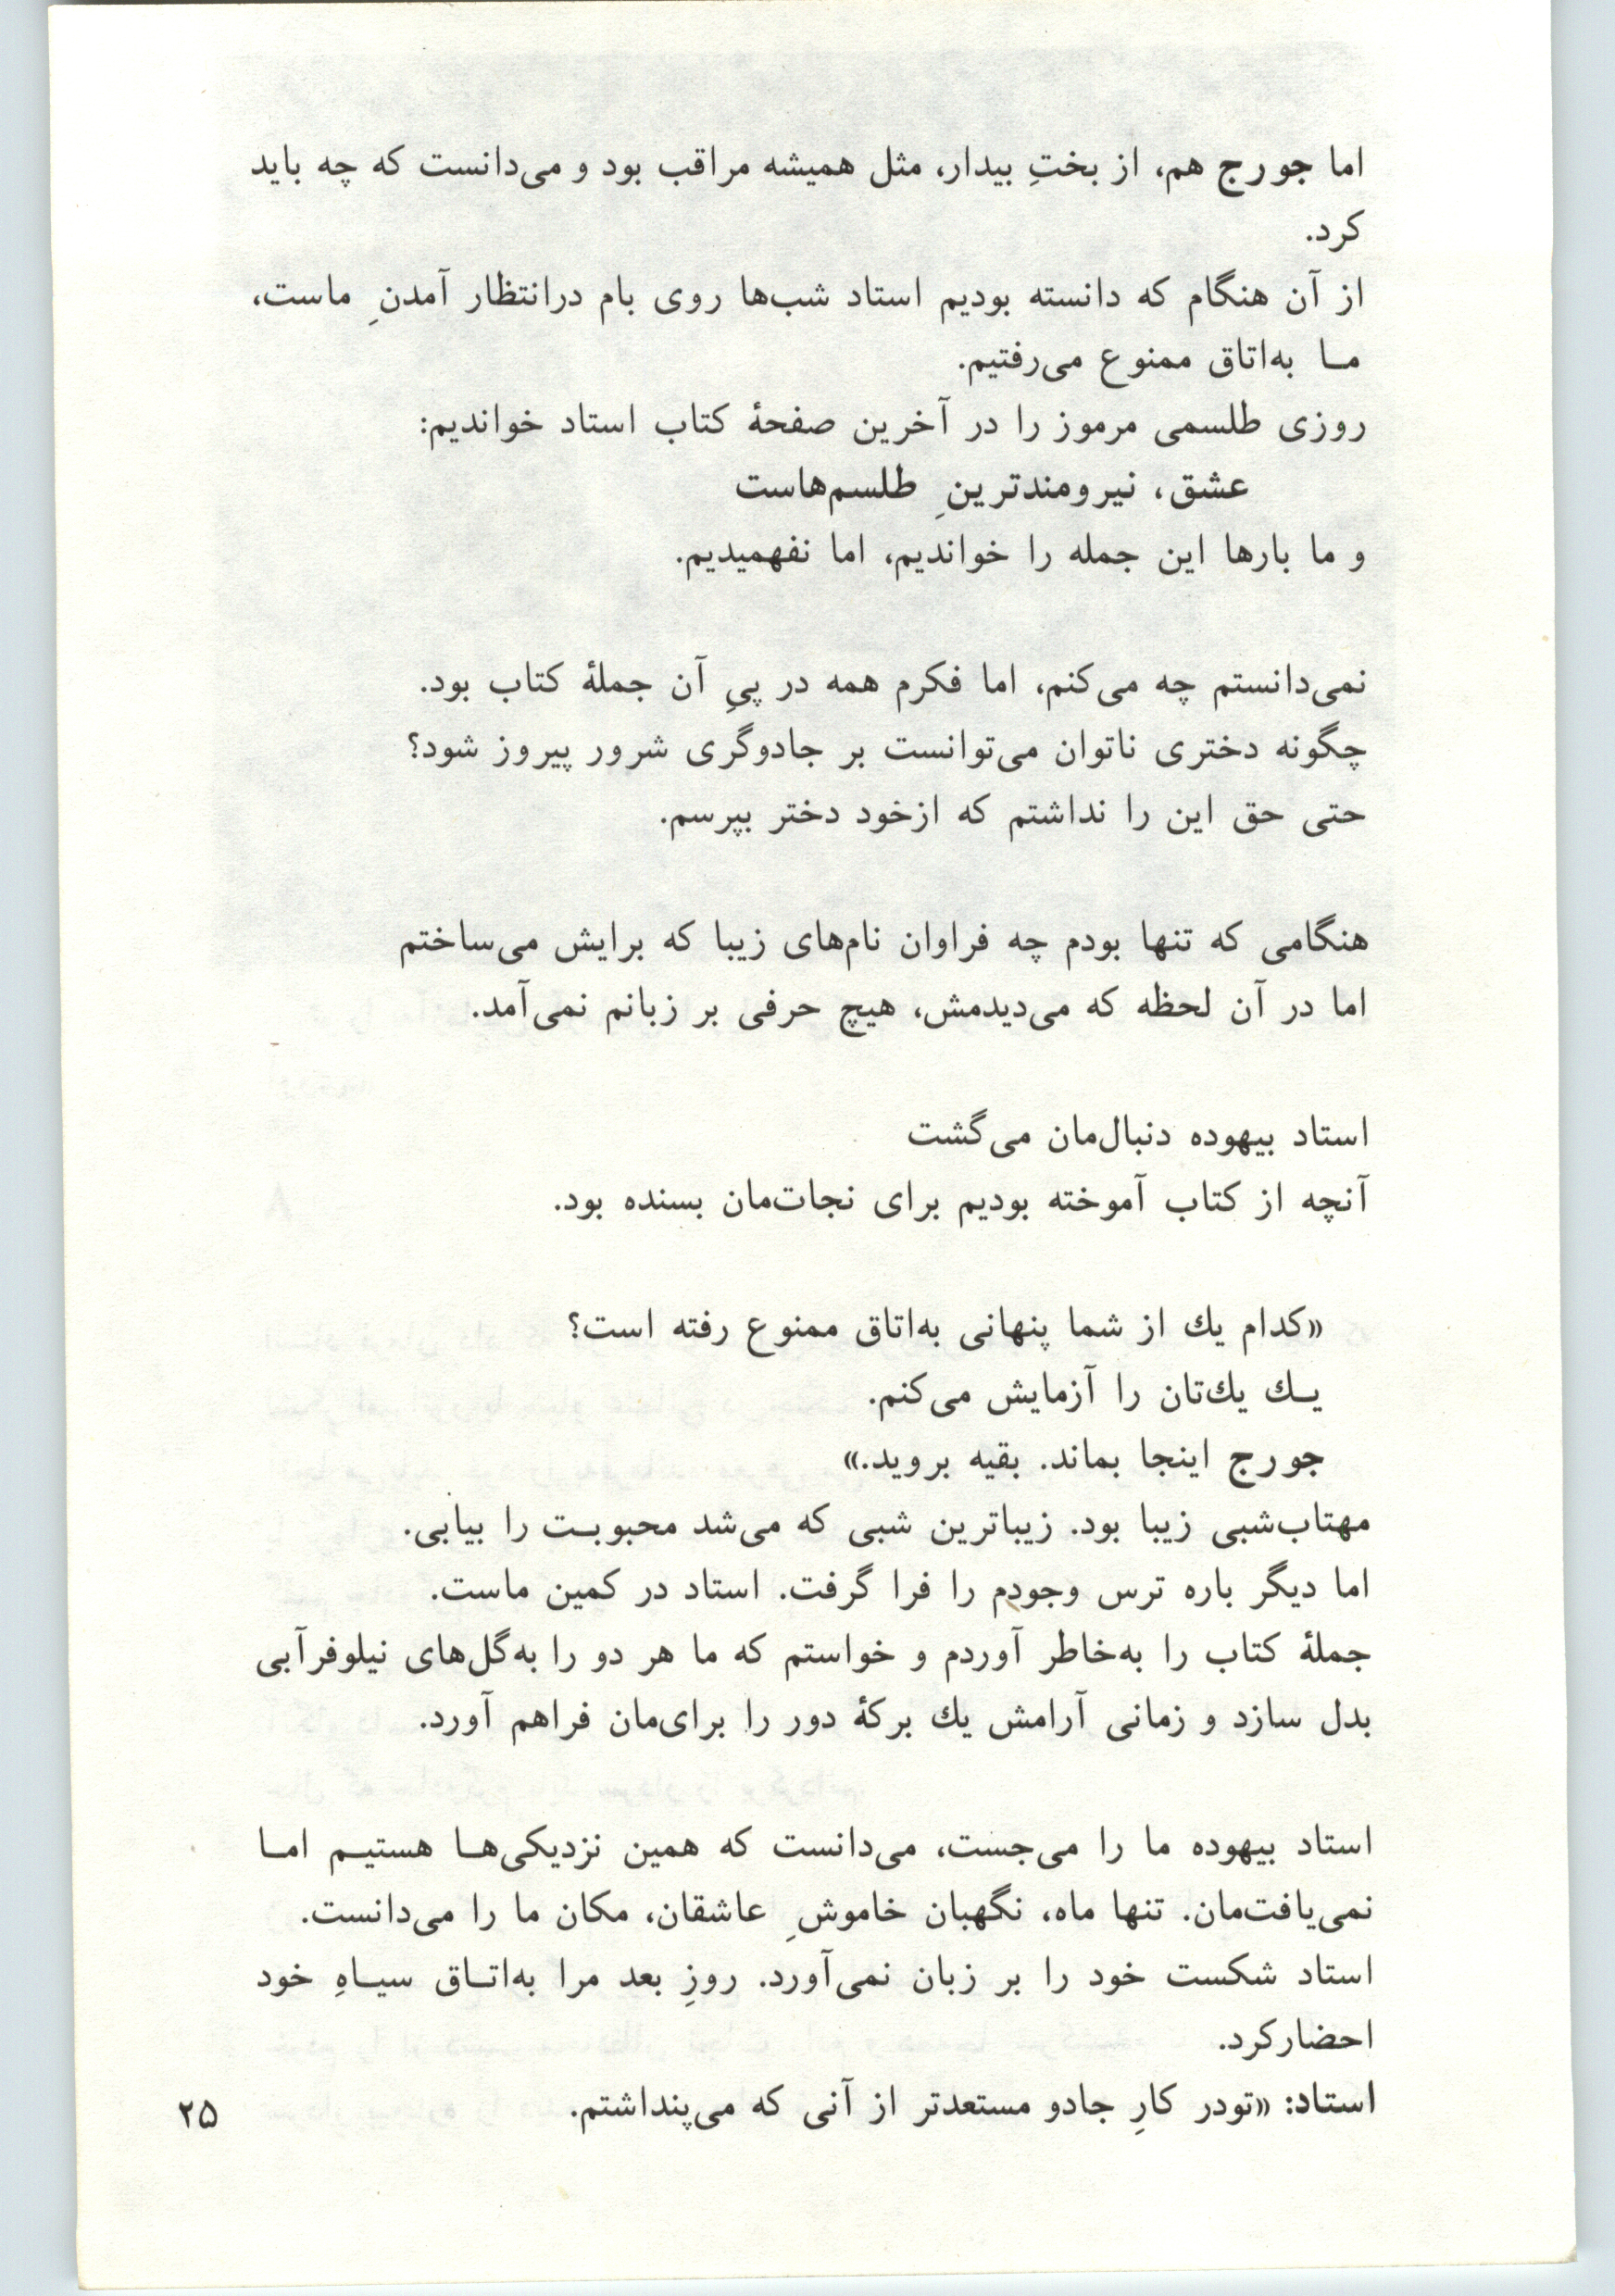 اما جورج هم، از بختِ بیدار، مثل همیشه مراقب بود و می‌دانست که چه باید
کرد.
از آن هنگام که دانسته بودیم استاد شب‌ها روی بام درانتظار آمدنِ ماست،
مـا به‌اتاق ممنوع می‌رفتیم.
روزی طلسمی مرموز را در آخرین صفحهٔ کتاب استاد خواندیم:
عشق، نیرومندترینِ طلسم‌هاست
و ما بارها این جمله را خواندیم، اما نفهمیدیم.
نمی‌دانستم چه می‌کنم، اما فکرم همه در پیِ آن جملهٔ کتاب بود.
چگونه دختری ناتوان می‌توانست بر جادوگری شرور پیروز شود؟
حتی حق این را نداشتم که ازخود دختر بپرسم.
هنگامی که تنها بودم چه فراوان نام‌های زیبا که برایش می‌ساختم
اما در آن لحظه که می‌دیدمش، هیچ حرفی بر زبانم نمی‌آمد.
استاد بیهوده دنبال‌مان می‌گشت
آنچه از کتاب آموخته بودیم برای نجات‌مان بسنده بود.
«کدام یك از شما پنهانی به‌اتاق ممنوع رفته است؟
یـك یك‌تان را آزمایش می‌کنم.
جورج اینجا بماند. بقیه بروید.»
مهتاب‌شبی زیبا بود. زیباترین شبی که می‌شد محبوبـت را بیابی.
اما دیگر باره ترس وجودم را فرا گرفت. استاد در کمین ماست.
جملهٔ کتاب را به‌خاطر آوردم و خواستم که ما هر دو را به‌گل‌های نیلوفرآبی
بدل سازد و زمانی آرامش یك برکهٔ دور را برای‌مان فراهم آورد.
استاد بیهوده ما را می‌جست، می‌دانست که همین نزدیکی‌هـا هستیـم امـا
نمی‌یافت‌مان. تنها ماه، نگهبان خاموشِ عاشقان، مکان ما را می‌دانست.
استاد شکست خود را بر زبان نمی‌آورد. روزِ بعد مرا به‌اتـاق سیـاهِ خود
احضارکرد.
استاد: «تودر کارِ جادو مستعدتر از آنی که می‌پنداشتم.
۲۵